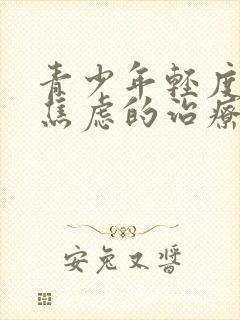 青少年轻度
焦虑的治疗
安兔又醬